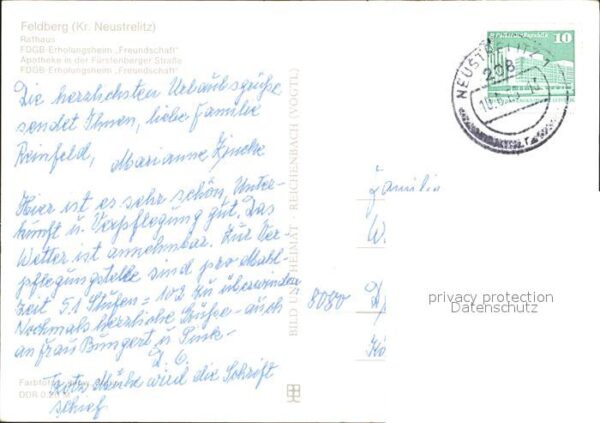 Feldberg (Kr. Neustrelitz)
Rathaus
FDGB-Erholungsheim „Freundschaft"
Apotheke in der Fürstenberger Straße
FDGB-Erholungsheim „Freundschaft"
Die herzlichsten Urlaubsgrüße
sendet Ihnen, liebe Familie
Reinfeld, Marianne
Hier ist es sehr schön, Unter-
kunft u. Verpflegung gut. Das
Wetter ist annehmbar. Zur Ver-
pflegungstelle sind pro Mahl-
zeit 51 Stufen = 102 zu überwinden
Nochmals herzliche Grüße - auch
an Frau Bungert u.
Trotz Mühe wird die Schrift
schief
DDR
BILD UND HEIMAT REICHENBACH (VOGTL)
10
NEUSTRELITZ 1
208
Familie
W.
8080 D
privacy protection
Datenschutz